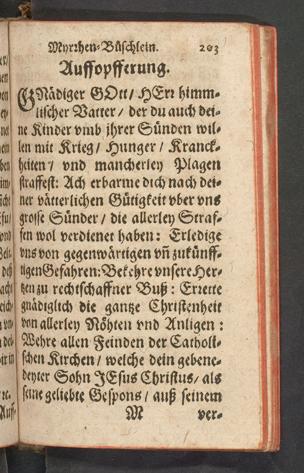 Myrrhen-Büschlein. 203
Auffopfferung.
GNädiger GOtt / HErr himm-
lischer Vatter / der du auch dei-
ne Kinder vmb jhrer Sünden wil-
len mit Krieg / Hunger / Kranck-
heiten / vnd mancherley Plagen
straffest: Ach erbarme dich nach dei-
ner vätterlichen Gütigkeit vber vns
grosse Sünder / die allerley Straf-
fen wol verdienet haben: Erledige
vns von gegenwärtigen vñ zukünff-
tigen Gefahren: Bekehre vnsere Her-
tzen zu rechtschaffner Buß: Errette
gnädiglich die gantze Christenheit
von allerley Nöhten vnd Anligen:
Wehre allen Feinden der Catholi-
schen Kirchen / welche dein gebene-
deyter Sohn JEsus Christus / als
seine geliebte Gespons / auß seinem
M ver-